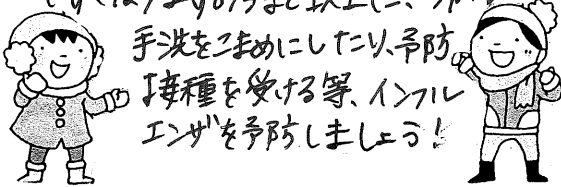 手洗をこまめにしたり、予防
接種を受ける等、インフル
エンザを予防しましょう!